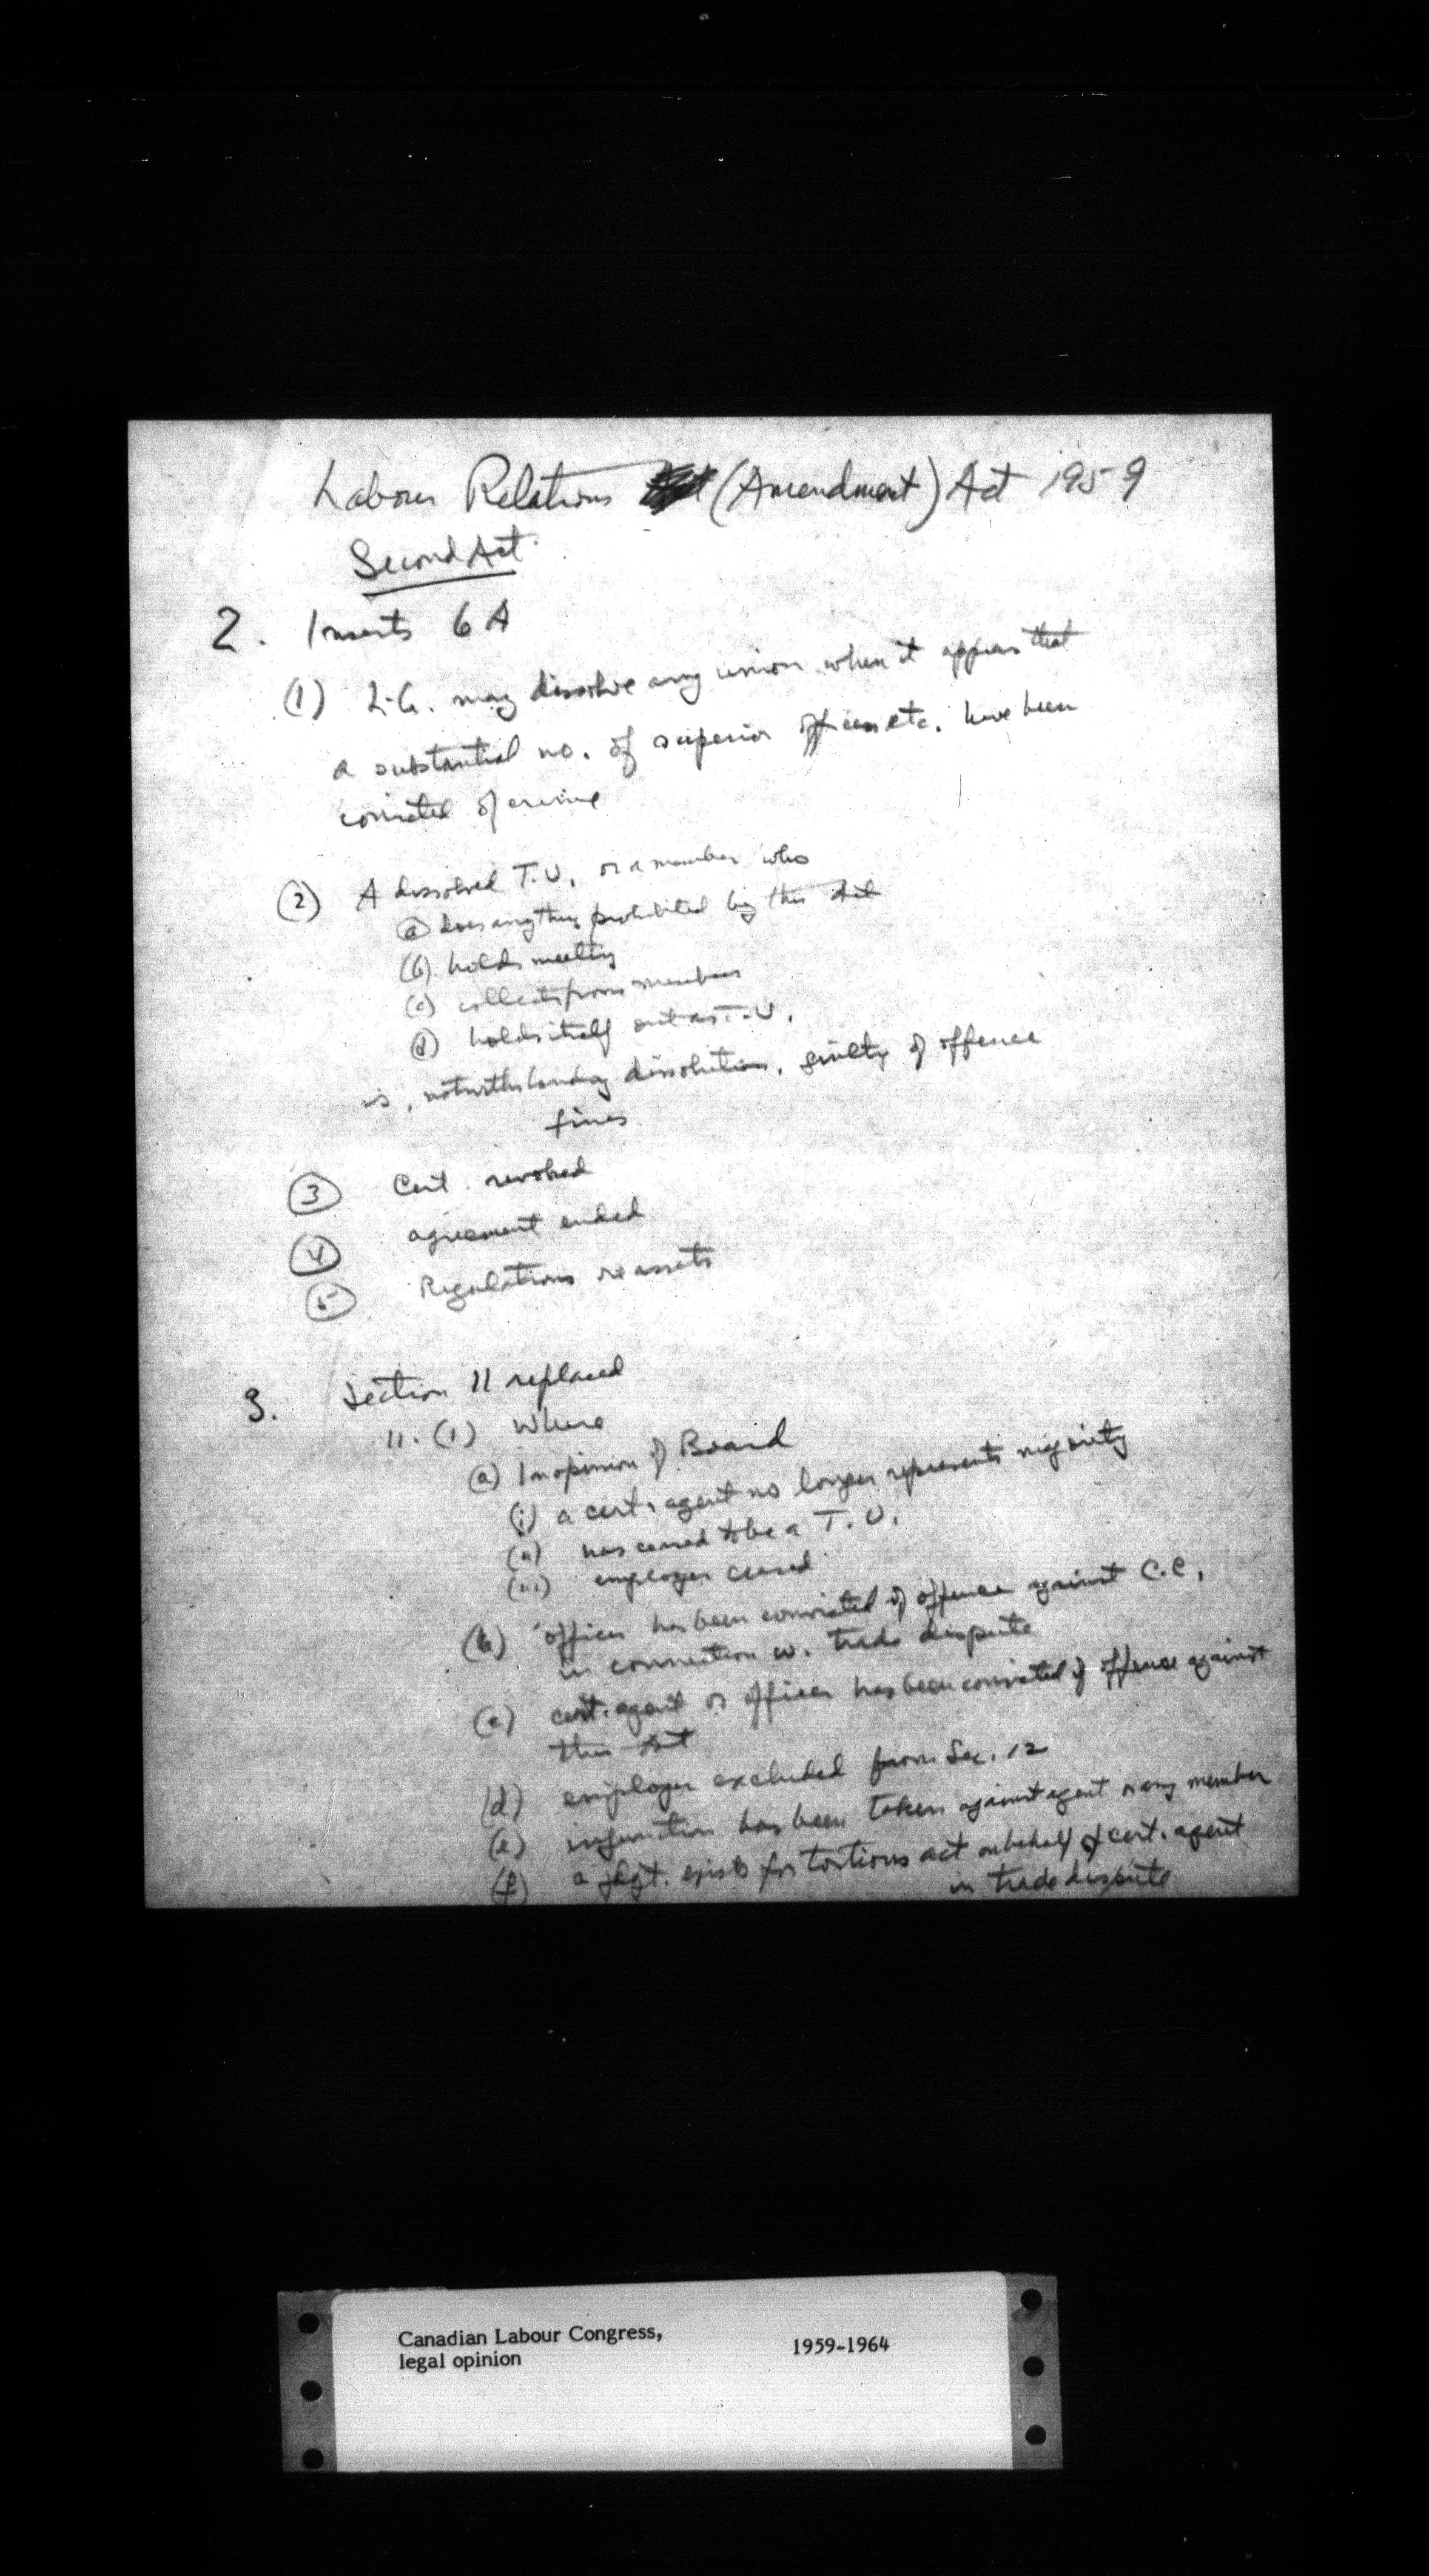 Labour Relations (Amendment) Act 1959
Second Act
2. Inserts 6A
(1) L-G. may dissolve any union when it appears that
a substantial no. of superior officers etc. have been
convicted of crime
(2) A dissolved T.U. or a member who
(a) does anything prohibited by this Act
(b) holds meeting
(c) collects from members
(d) holds itself out as T.U.
is, notwithstanding dissolution, guilty of offence
fines
(3) Cert. revoked
(4) agreement ended
(5) Regulations re assets
3. Section 11 replaced
11. (1) Where
(a) In opinion of Board
(i) a cert. agent no longer represents majority
(ii) has ceased to be a T.U.
(iii) employer ceased
(b) officer has been convicted of offence against C.C.
in connection w. trade dispute
(c) cert. agent or officer has been convicted of offence against
this Act
(d) employer excluded from Sec. 12
(e) injunction has been taken against agent or any member
(f) a jdgt. exists for tortious act on behalf of cert. agent
in trade dispute
Canadian Labour Congress, 1959-1964
legal opinion